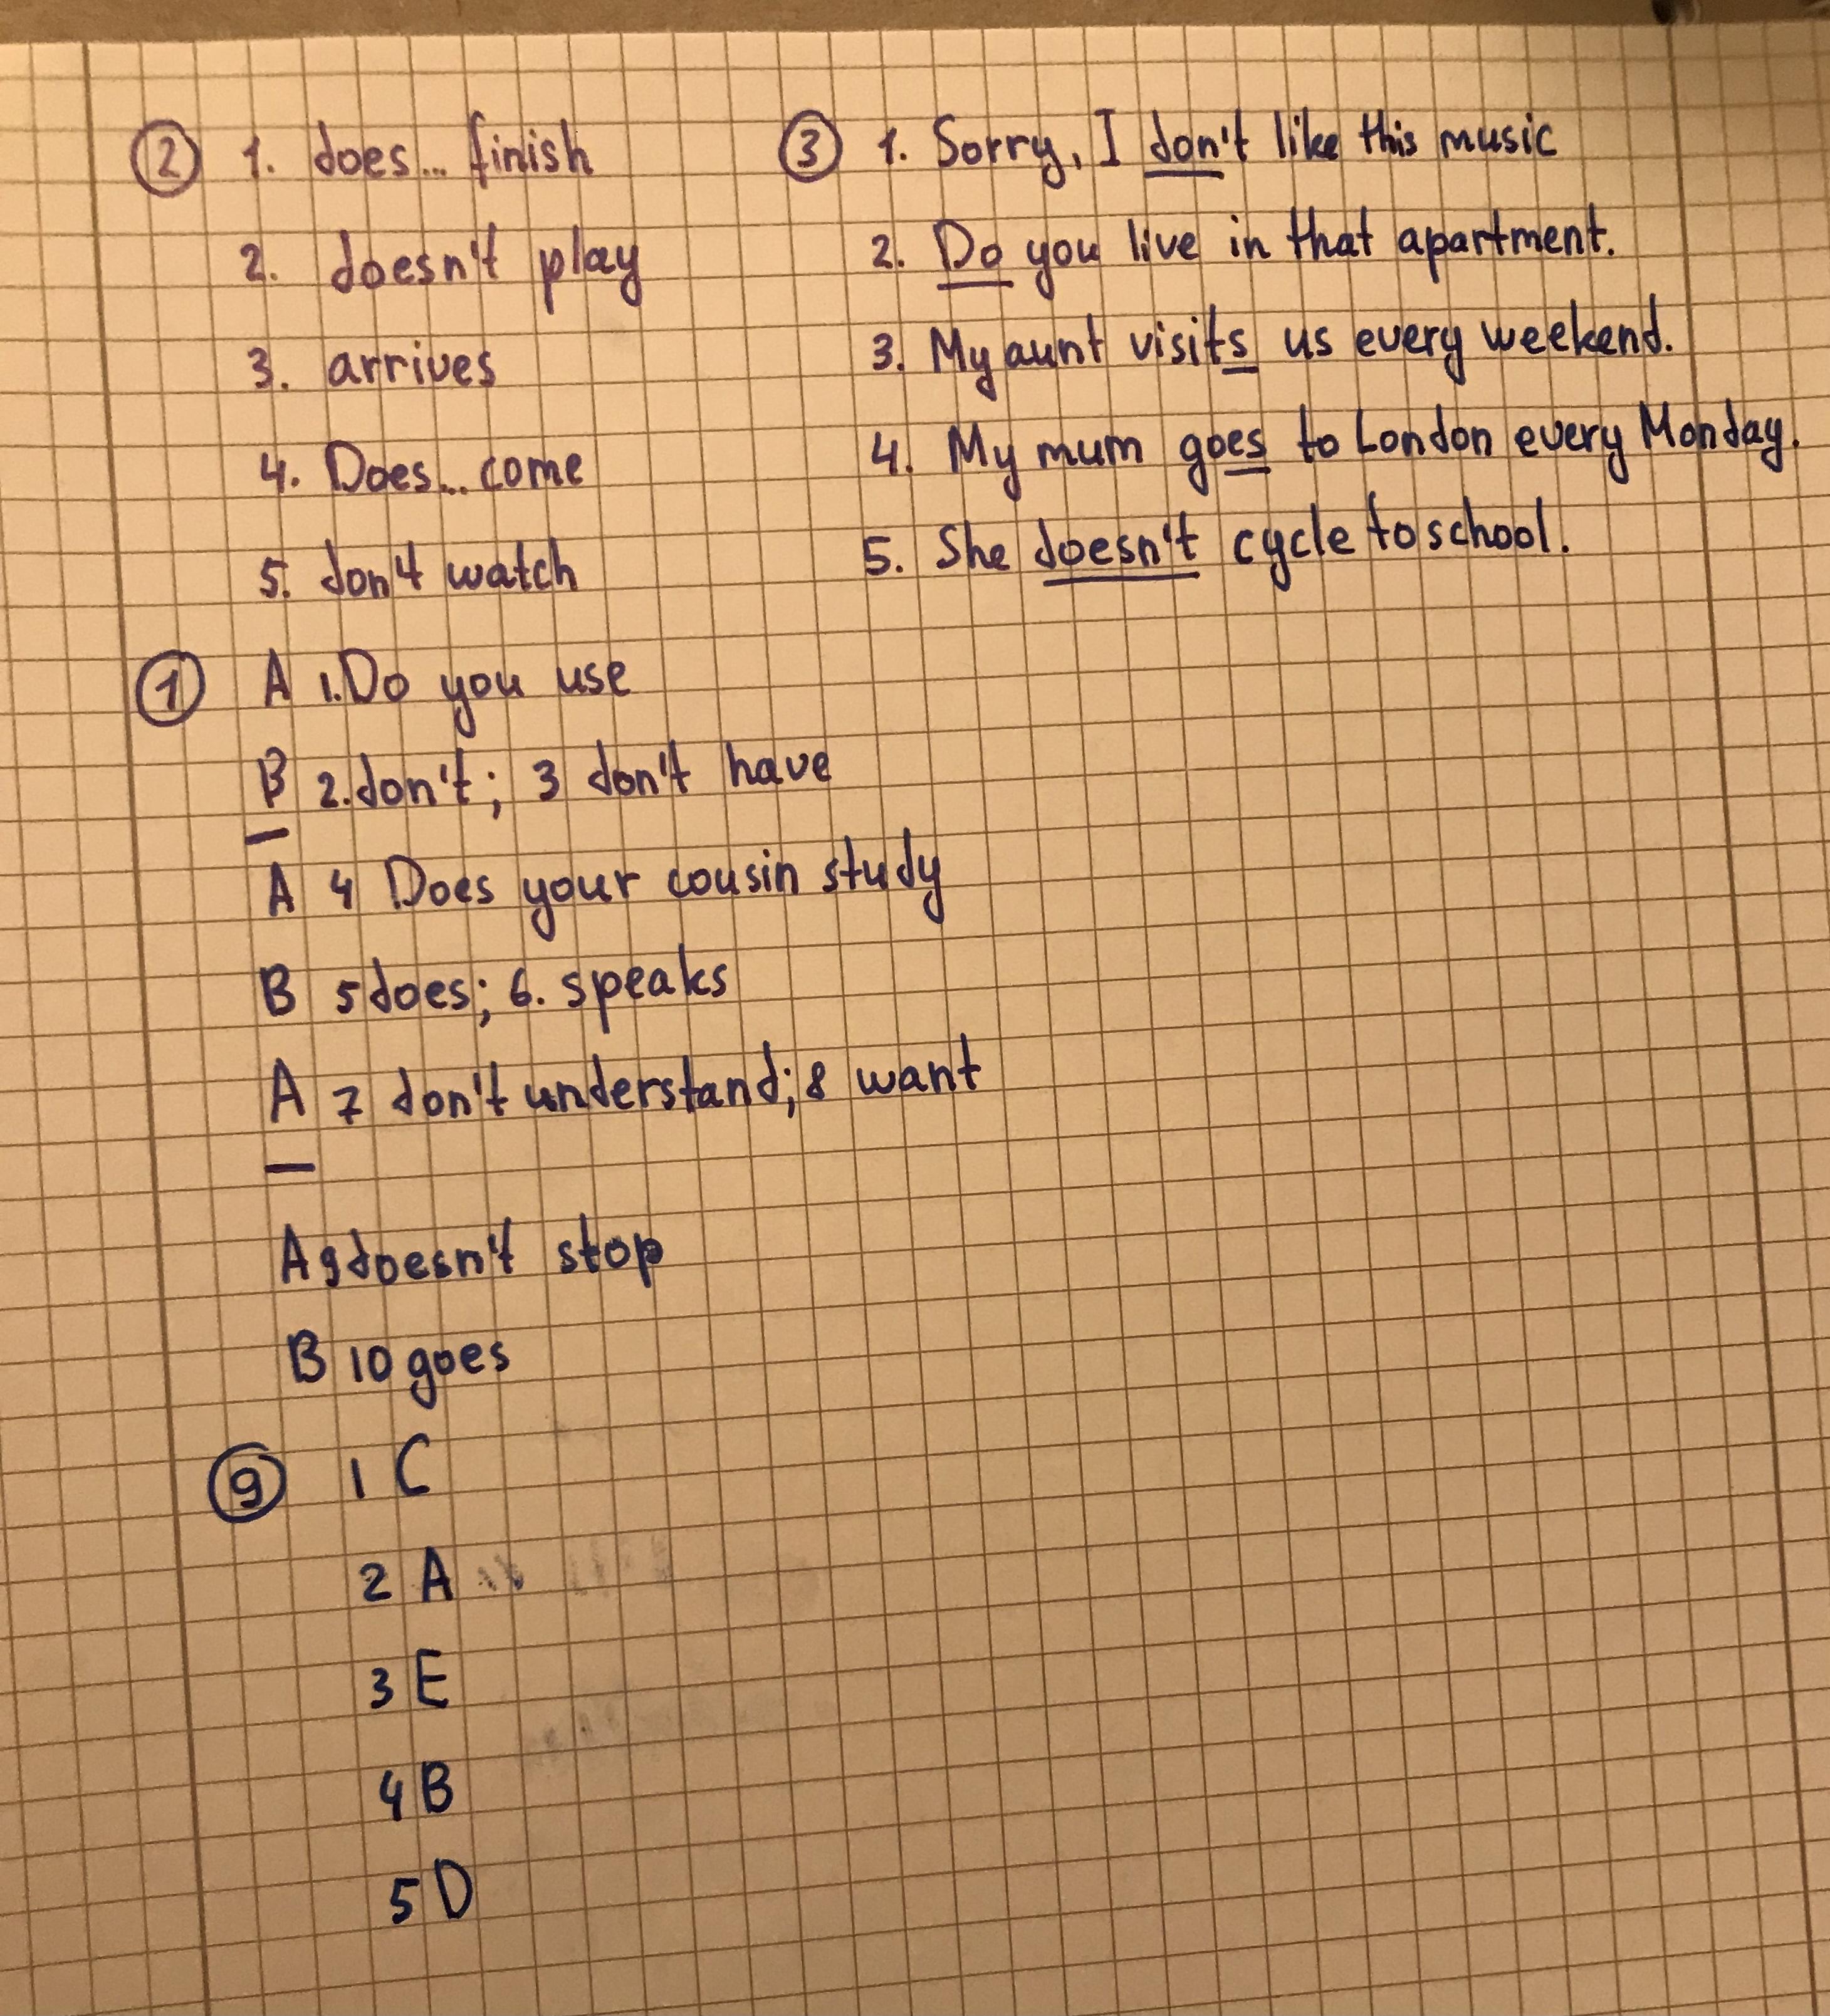 ② 1. does... finish
2. doesn't play
3. arrives
4. Does... come
5. don't watch
③ 1. Sorry, I don't like this music
2. Do you live in that apartment.
3. My aunt visits us every weekend.
4. My mum goes to London every Monday.
5. She doesn't cycle to school.
① A 1. Do you use
B 2. don't; 3 don't have
A 4 Does your cousin study
B 5 does; 6. speaks
A 7 don't understand; 8 want
A 9 doesn't stop
B 10 goes
⑨ 1 C
2 A
3 E
4 B
5 D